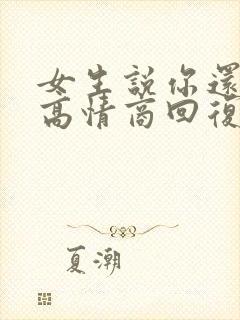 女生說你還
高情商回復
夏潮